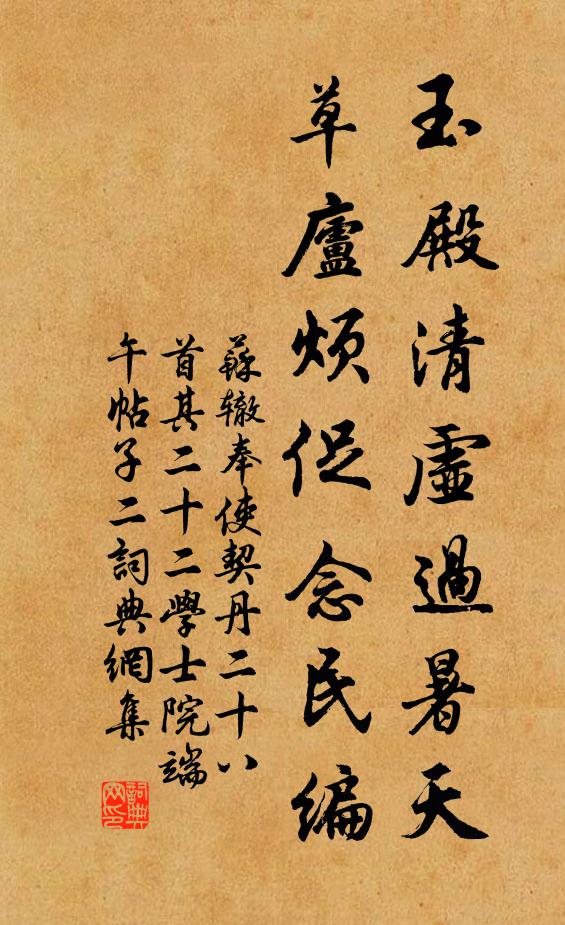 玉殿清虛過暑天
草廬煩促念民編
蘇辙奉使契丹二十八
首其二十二學士院端
午帖子二詞典網集
詞典网印